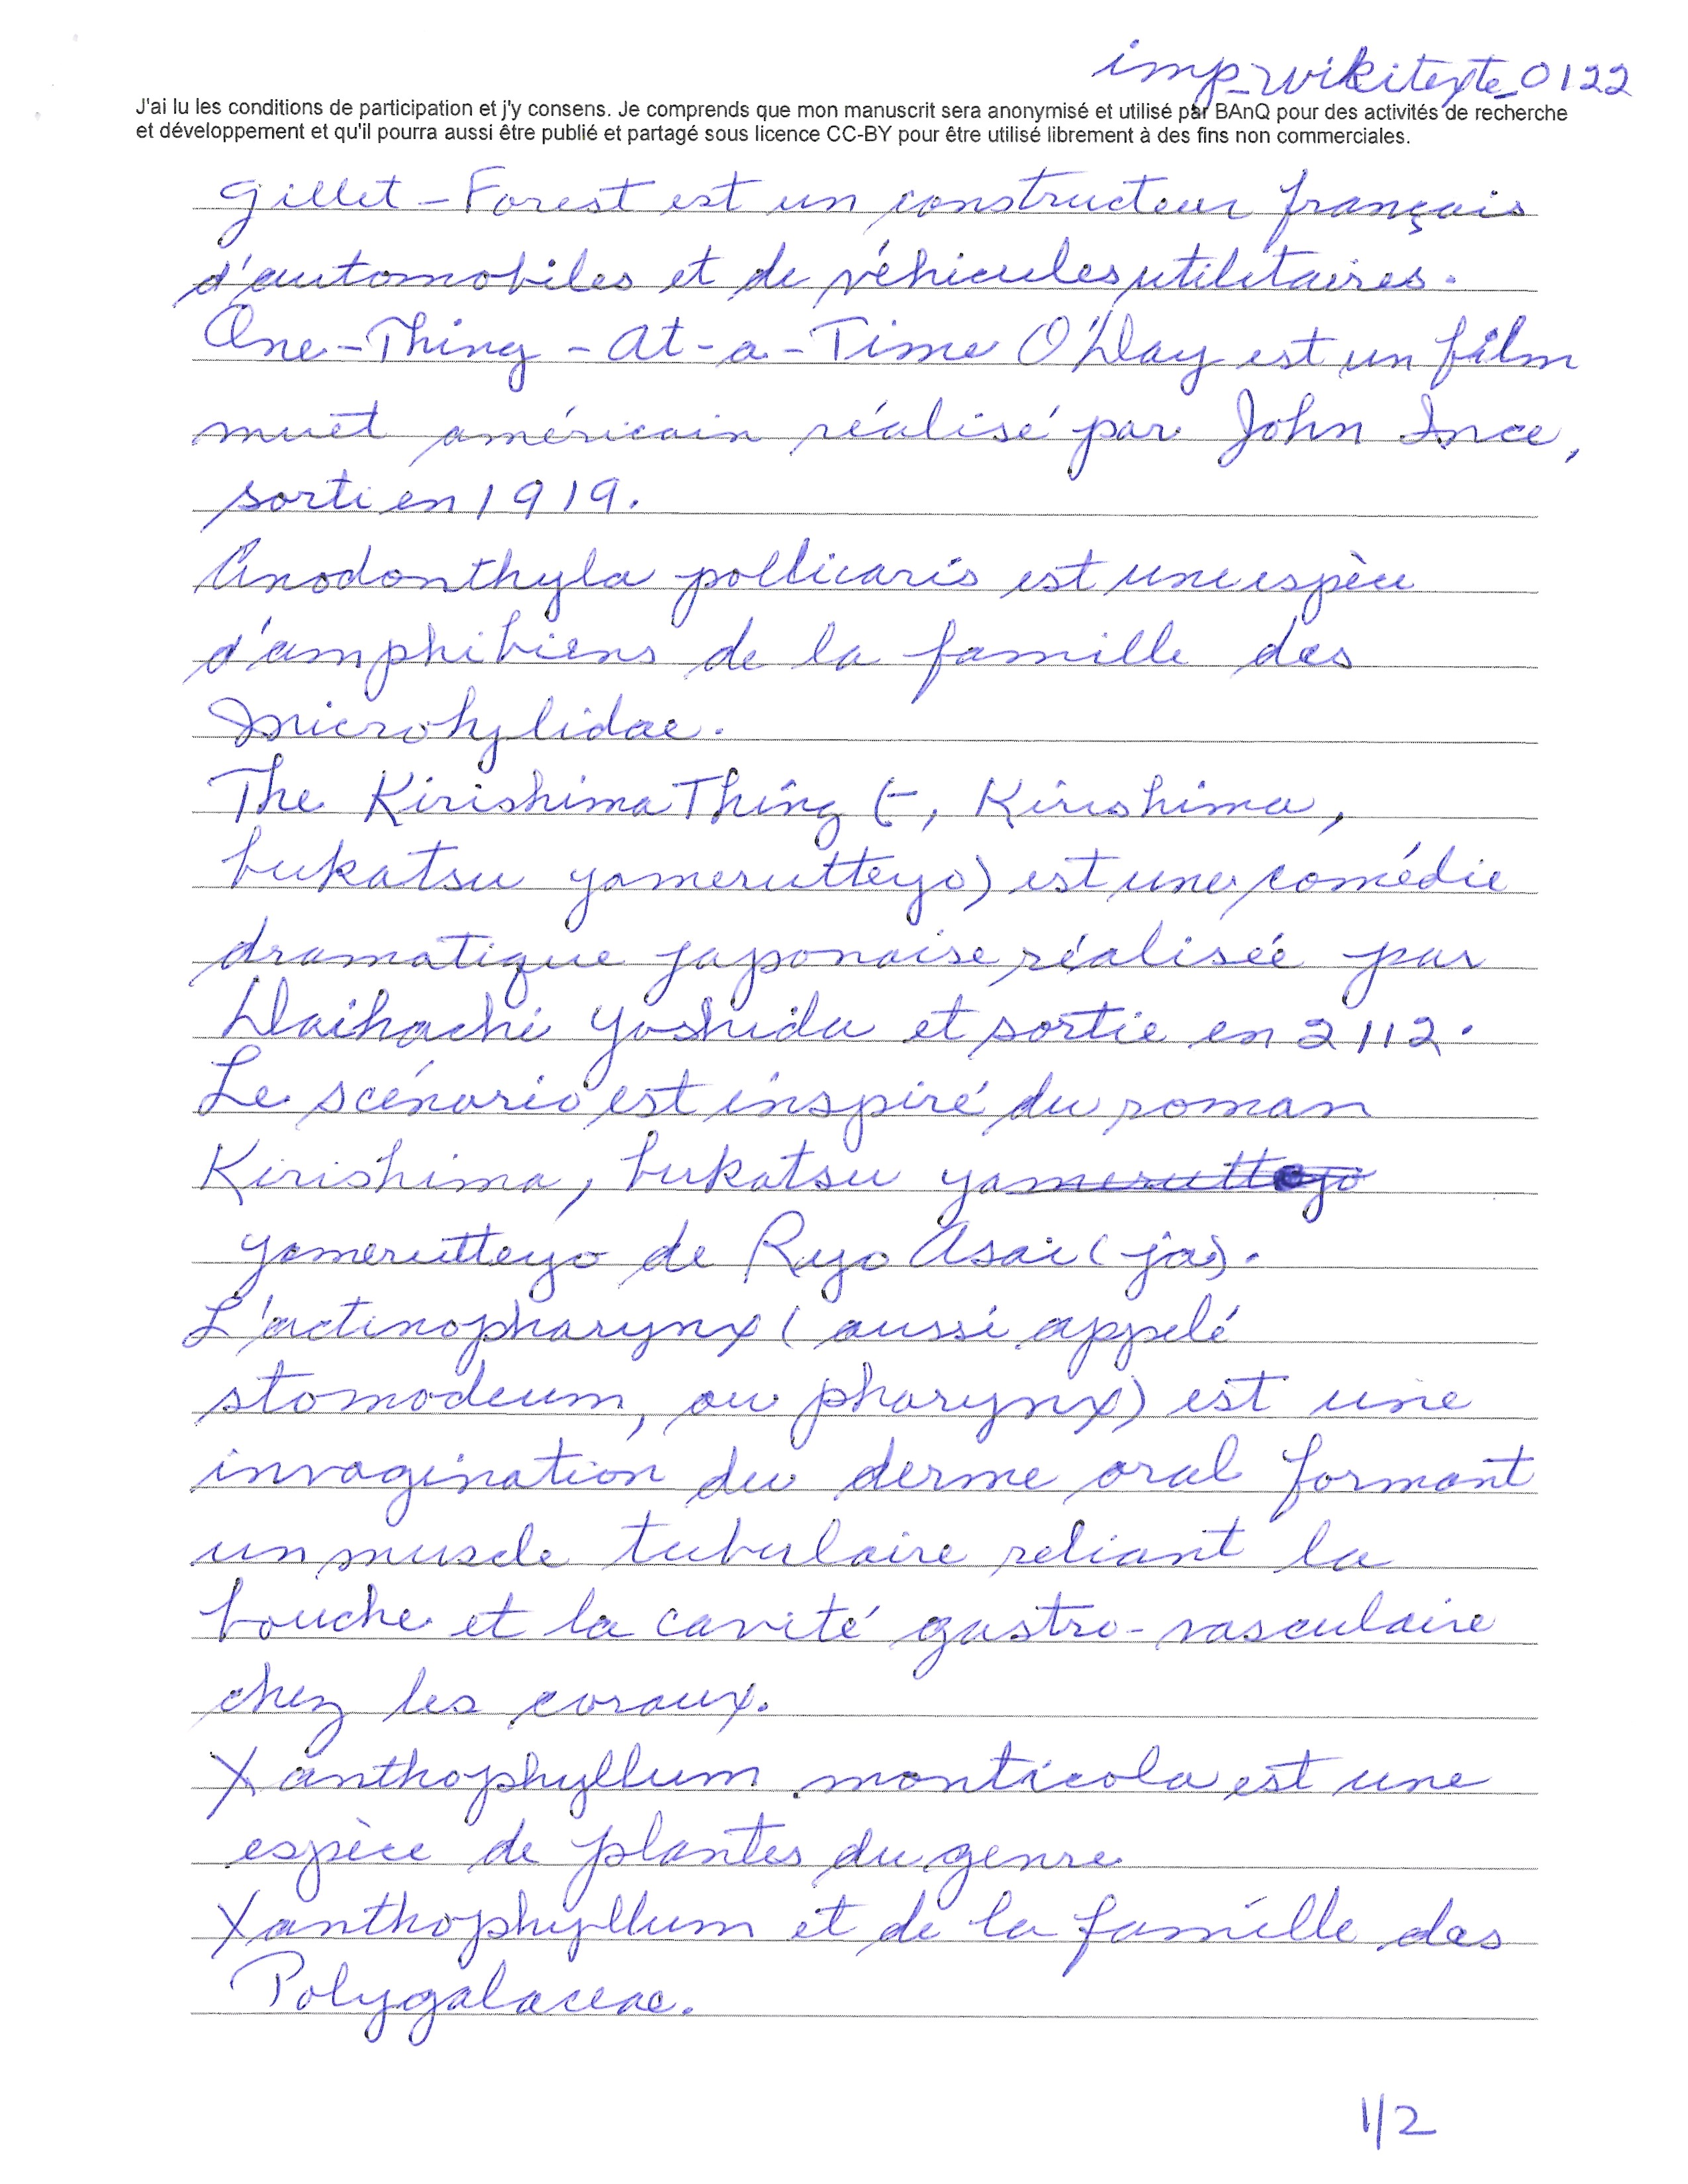 imp_wikitexte_0122
J'ai lu les conditions de participation et j'y consens. Je comprends que mon manuscrit sera anonymisé et utilisé par BAnQ pour des activités de recherche
et développement et qu'il pourra aussi être publié et partagé sous licence CC-BY pour être utilisé librement à des fins non commerciales.
Gillet-Forest est un constructeur français
d'automobiles et de véhicules utilitaires.
One-Thing-at-a-Time O'Day est un film
muet américain réalisé par John Ince,
sorti en 1919.
Anodonthyla pollicaris est une espèce
d'amphibiens de la famille des
Microhylidae.
The Kirishima Thing (-, Kirishima,
bukatsu yamerutteyo) est une comédie
dramatique japonaise réalisée par
Daihachi Yoshida et sortie en 2112.
Le scénario est inspiré du roman
Kirishima, bukatsu yamerutteyo
yamerutteyo de Ryo Asai (ja).
L'actinopharynx (aussi appelé
stomodeum, ou pharynx) est une
invagination du derme oral formant
un muscle tubulaire reliant la
bouche et la cavité gastro-vasculaire
chez les coraux.
Xanthophyllum monticola est une
espèce de plantes du genre
Xanthophyllum et de la famille des
Polygalaceae.
1/2